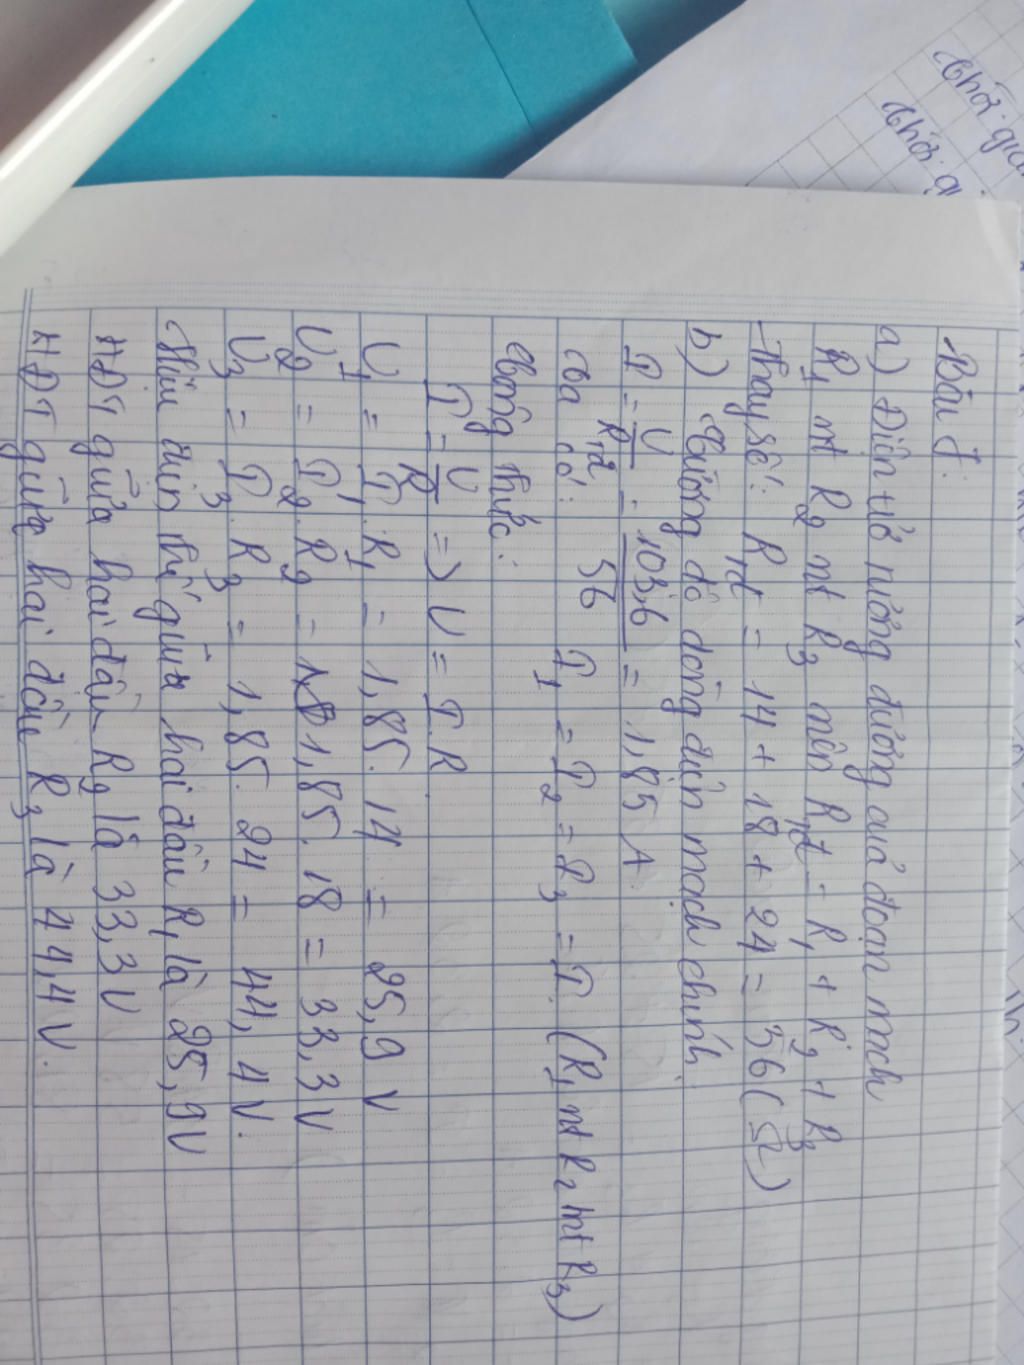 Bài 1:
a) Điện trở tương đương quả đoạn mạch
R1 nt R2 nt R3 nên Rtđ = R1 + R2 + R3
Thay số: Rtđ = 14 + 18 + 24 = 56 (Ω)
b) Cường độ dòng điện mạch chính.
I = U/Rtđ = 103,6/56 = 1,85 A.
Ta có: I1 = I2 = I3 = I. (R1 nt R2 nt R3)
Công thức:
I = U/R => U = I.R.
U1 = I1.R1 = 1,85. 14 = 25,9 V
U2 = I2.R2 = 1,85. 18 = 33,3 V
U3 = I3.R3 = 1,85. 24 = 44,4 V.
Hiệu điện thế giữa hai đầu R1 là 25,9V
HĐT giữa hai đầu R2 là 33,3V
HĐT giữa hai đầu R3 là 44,4V.
Thời gian
Thời gi